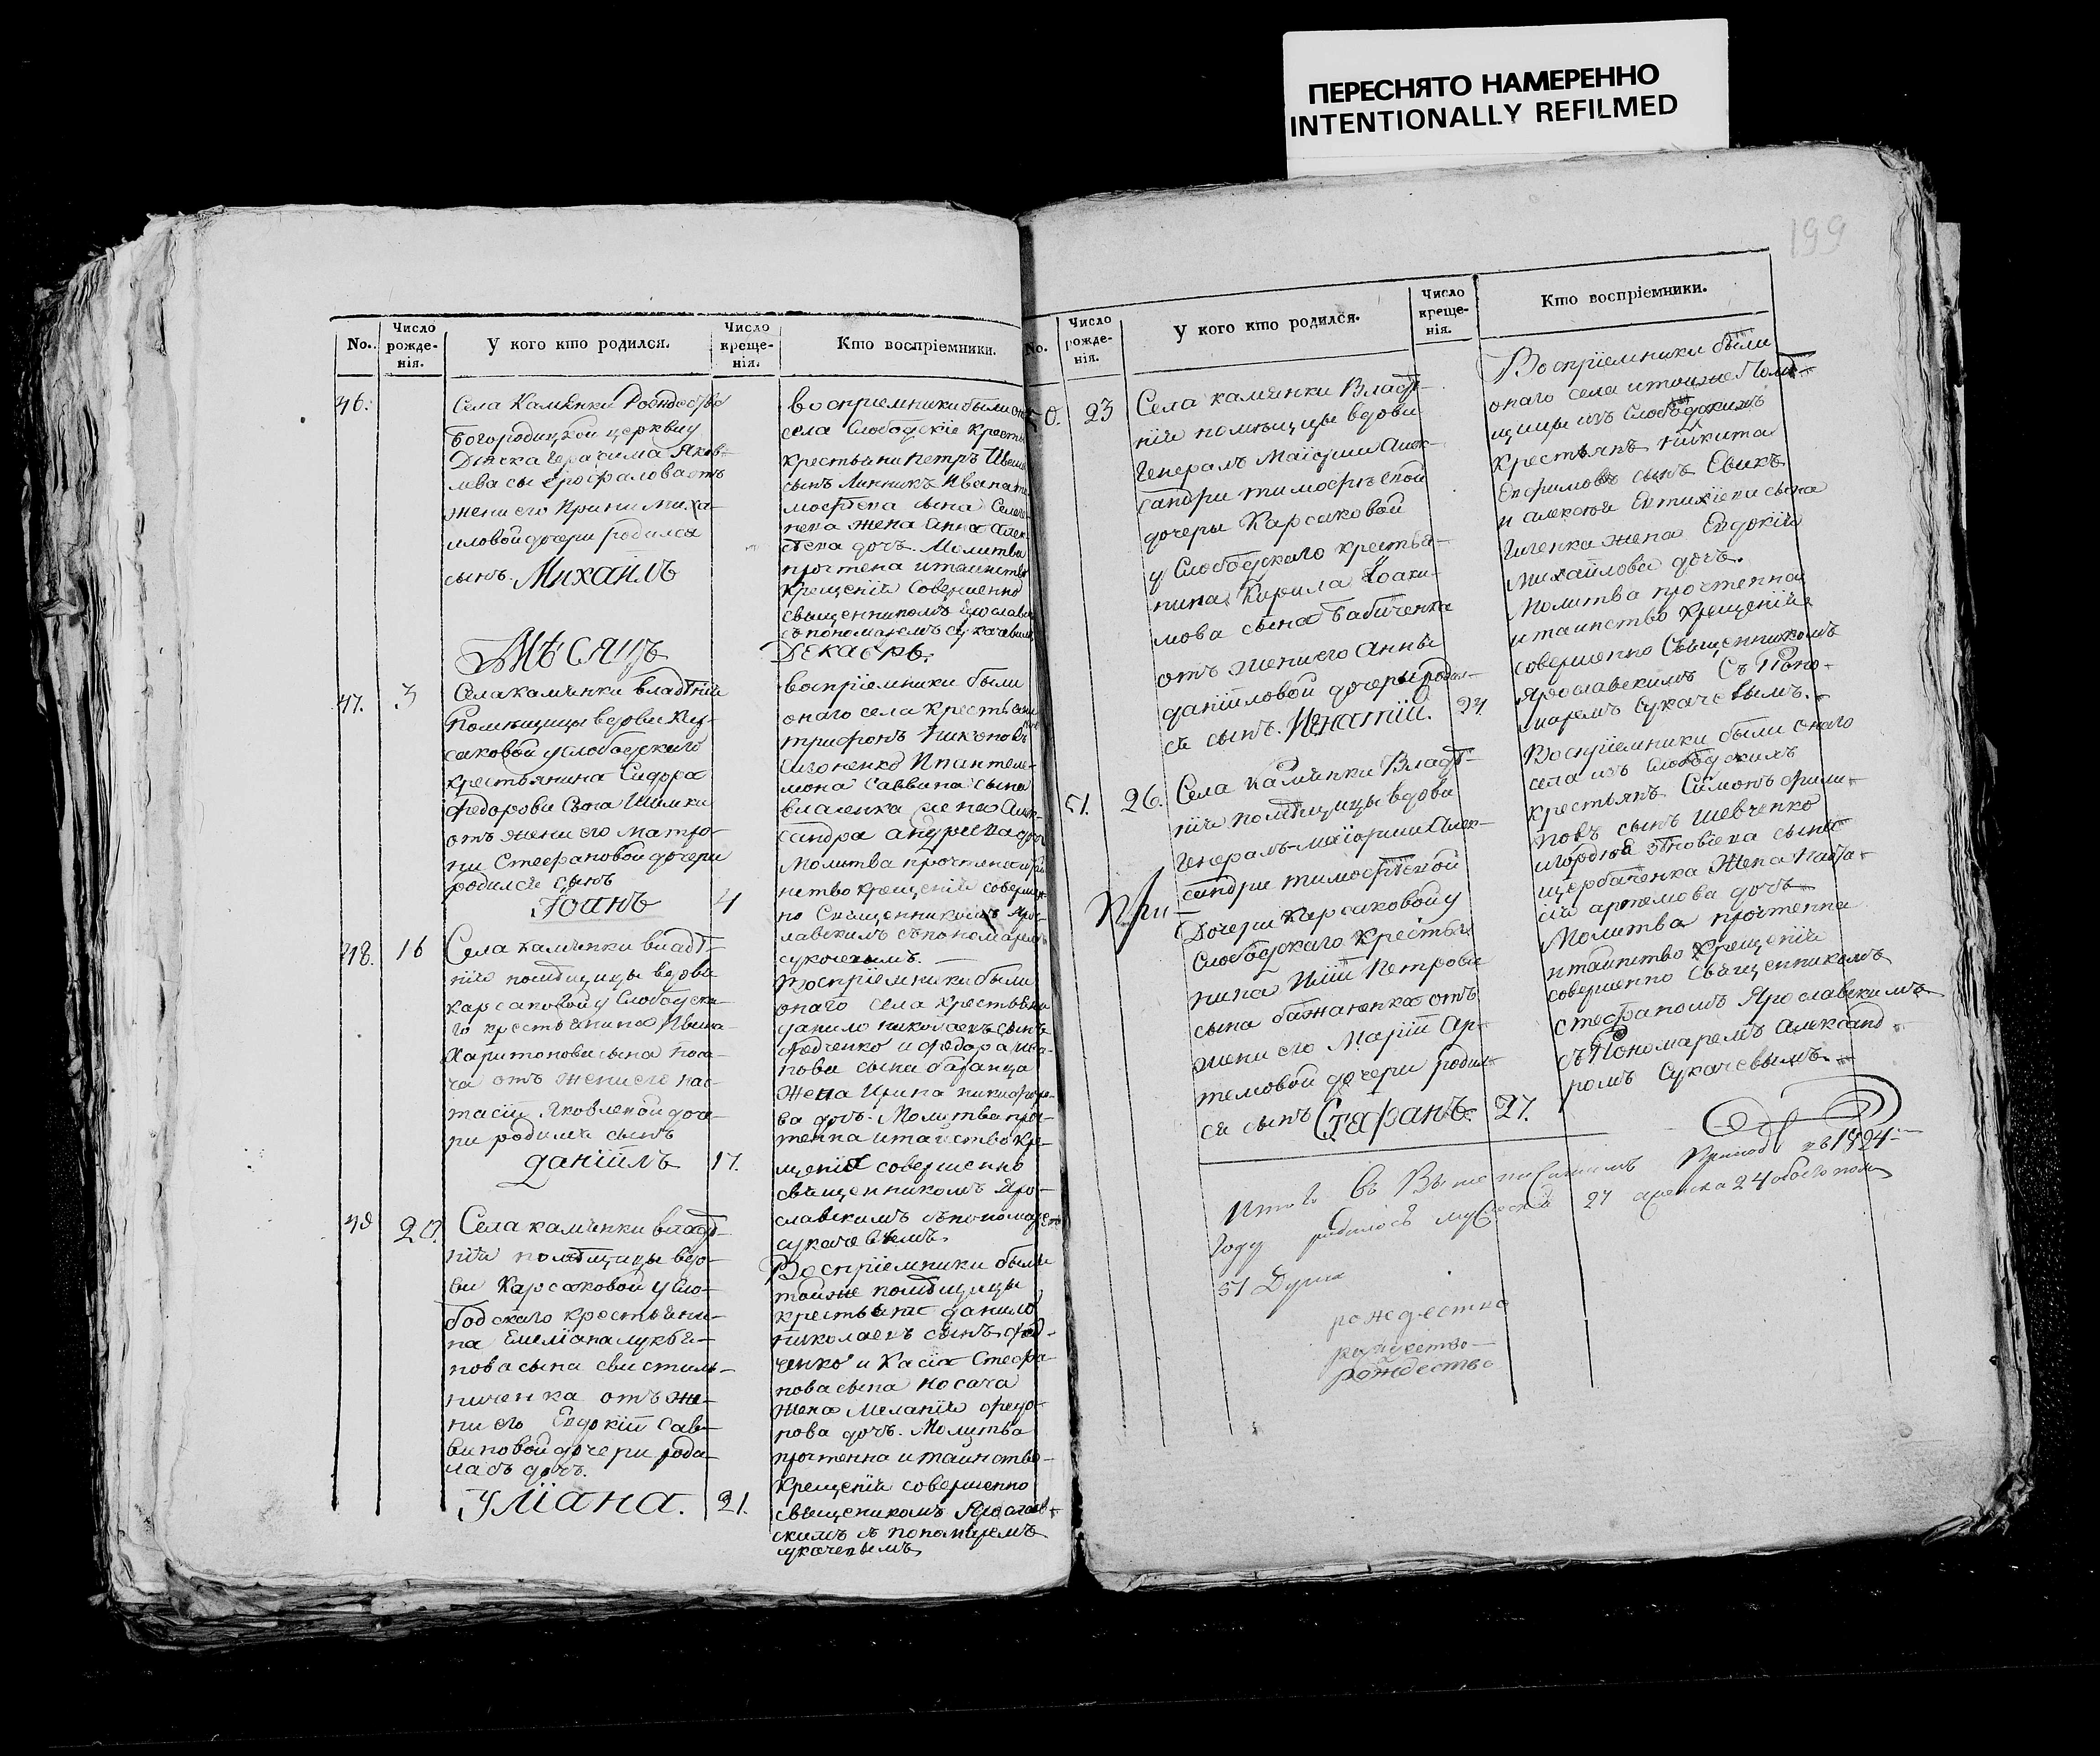 ПЕРЕСНЯТО НАМЕРЕННО
INTENTIONALLY REFILMED
199
No.
Число рожде-нія.
У кого кто родился.
Число креще-нія.
Кто воспріемники.
46.
Села Каменки
Богородицкой церкви у
Дячка Герасима Яков-
лева сы
жени его Ирини Миха-
иловой дочери родился
сынъ Михаилъ
воспріемники были
села Слободскіе
крестьяни Петръ
сынъ Линникъ Ивана
сына
жена Анна
дочъ. Молитва
прочтена и таинство
крещенія совершенно
священникомъ Ярославскимъ
съ пономаремъ Сукачевимъ
Мѣсяцъ
Декабрь.
47.
3
Села Каменки владѣнія
Помѣщицы вдови Кор-
саковой у слободского
крестьянина Сидора
Федорова сына
отъ жени его Матро-
ни Стефановой дочери
родился сынъ
Іоанъ
4
воспріемники были
онаго села крестьяни
Трифонъ Никоновъ
и Пантеле-
мона Саввина сына
жена Алек-
сандра Андреева дочъ
Молитва прочтена и таи-
нство крещенія совершен-
но Священникомъ Яро-
славскимъ съ пономаремъ
Сукачевымъ.
48.
16
Села Каменки владѣ-
нія помѣщицы вдовы
Карсаковой у Слободска-
го крестьянина Ивана
Харитонова сынаНоса-
ча отъ жени его Нас-
тасіи Яковлевой доче-
ри родился сынъ
Даніилъ
17.
Воспріемники были
онаго села крестьяни
Данило Николаевъ сынъ
Федченко и Федора Ива-
нова сына
жена Ирина Никифоро-
ва дочъ. Молитва проч-
тенна и таинство кре-
щенія совершенно
священникомъ Яро-
славскимъ съ пономаремъ
Сукачевымъ.
49
20.
Села Каменки владѣ-
нія помѣщицы вдо-
ви Карсаковой у Сло-
бодскаго крестьяни-
на Емеліана Лукья-
нова сына Свистиль-
ниченка отъ же-
ни его Евдокіи Сав-
виновой дочери роди-
лась дочъ.
Уліана.
21.
Воспріемники были
тойже помѣщицы
крестьяне Данило
Николаевъ сынъ Фед-
ченко и Касія Стефа-
нова сына Носача
жена Меланія Федо-
рова дочъ. Молитва
прочтенна и таинство
Крещенія совершенно
священикомъ Ярослав-
скимъ съ пономаремъ
Сукачевымъ
No.
Число рожде-нія.
У кого кто родился.
Число креще-нія.
Кто воспріемники.
50.
23
Села Каменки Владѣ-
нія помѣщицы вдови
Генералъ Маіорши Алек-
сандри Тимофѣевой
дочеры Карсаковой
у Слободскаго крестья-
нина Кирила Іоаки-
мова сына Бабиченка
отъ жени его Анны
Даніиловой дочеры родил-
ся сынъ. Игнатій.
24.
Воспріемники были
онаго села и тоиже Помѣ-
щицы изъ Слободскихъ
крестьянъ Никита
Ефимовъ сынъ
и Алексѣя Евтихіева сына
жена Евдокія
Михайлова дочъ.
Молитва прочтенна
и таинство Крещенія
совершенно Священникомъ
Ярославскимъ Съ Поно-
маремъ Сукачевымъ.
51.
26.
Села Каменки Владѣ-
нія помѣщицы вдови
Генералъ-маіорши Алек-
сандри Тимофѣевой
Дочери Карсаковой у
Слободскаго Крестья-
нина Иліи Петрова
сына Бажаненка отъ
жени его Маріи Ар-
темовой дочери родил-
ся сынъ Стефанъ.
27.
Воспріемники были онаго
села изъ Слободскихъ
крестьянъ Симонъ Фили-
повъ сынъ Шевченко
и Гордѣя сына
Щербаченка жена Ната-
лія Артемова дочъ
Молитва прочтенна
и таинство Крещенія
совершенно Священникомъ
Стефаномъ Ярославскимъ
съ Пономаремъ Александ-
ромъ Сукачевымъ.
При-
Итого въ Вышеписанномъ Приходѣ въ 1824
Году родилось мужеска 27 женска 24 обоего пола
51 Душа
рожество
рождество